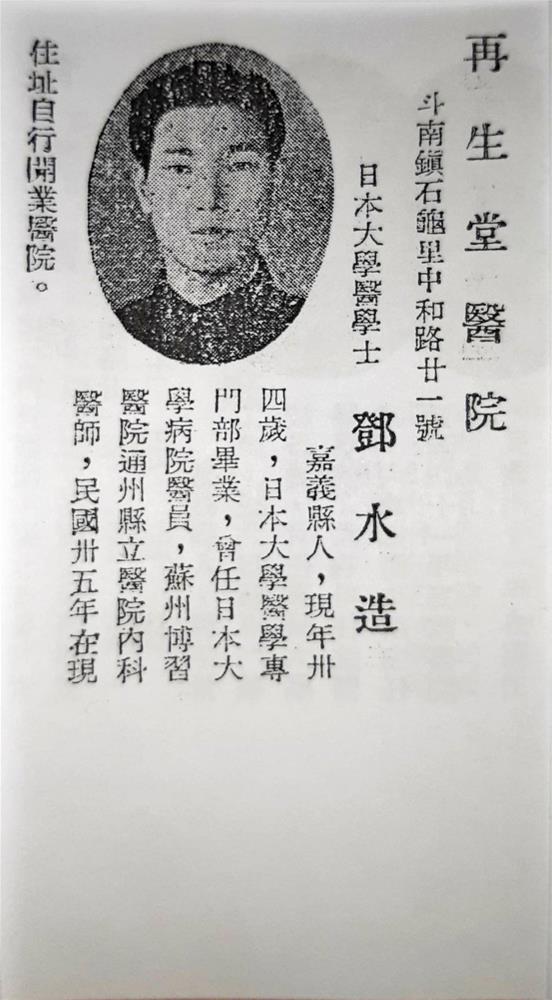 再生堂醫院
斗南鎮石龜里中和路廿一號
日本大學醫學士 鄧水造
嘉義縣人，現年卅
四歲，日本大學醫學專
門部畢業，曾任日本大
學病院醫員，蘇州博習
醫院通州縣立醫院內科
醫師，民國卅五年在現
住址自行開業醫院。